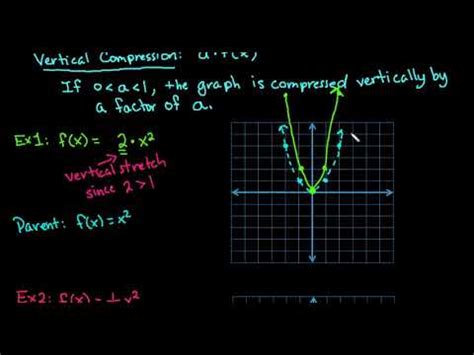 Vertical Compression: a · f(x)
If 0<a<1, the graph is compressed vertically by
a factor of a.
Ex1: f(x) = 2 · x²
vertical stretch
since 2 > 1
Parent: f(x) = x²
Ex2: f(x) = 1 x²